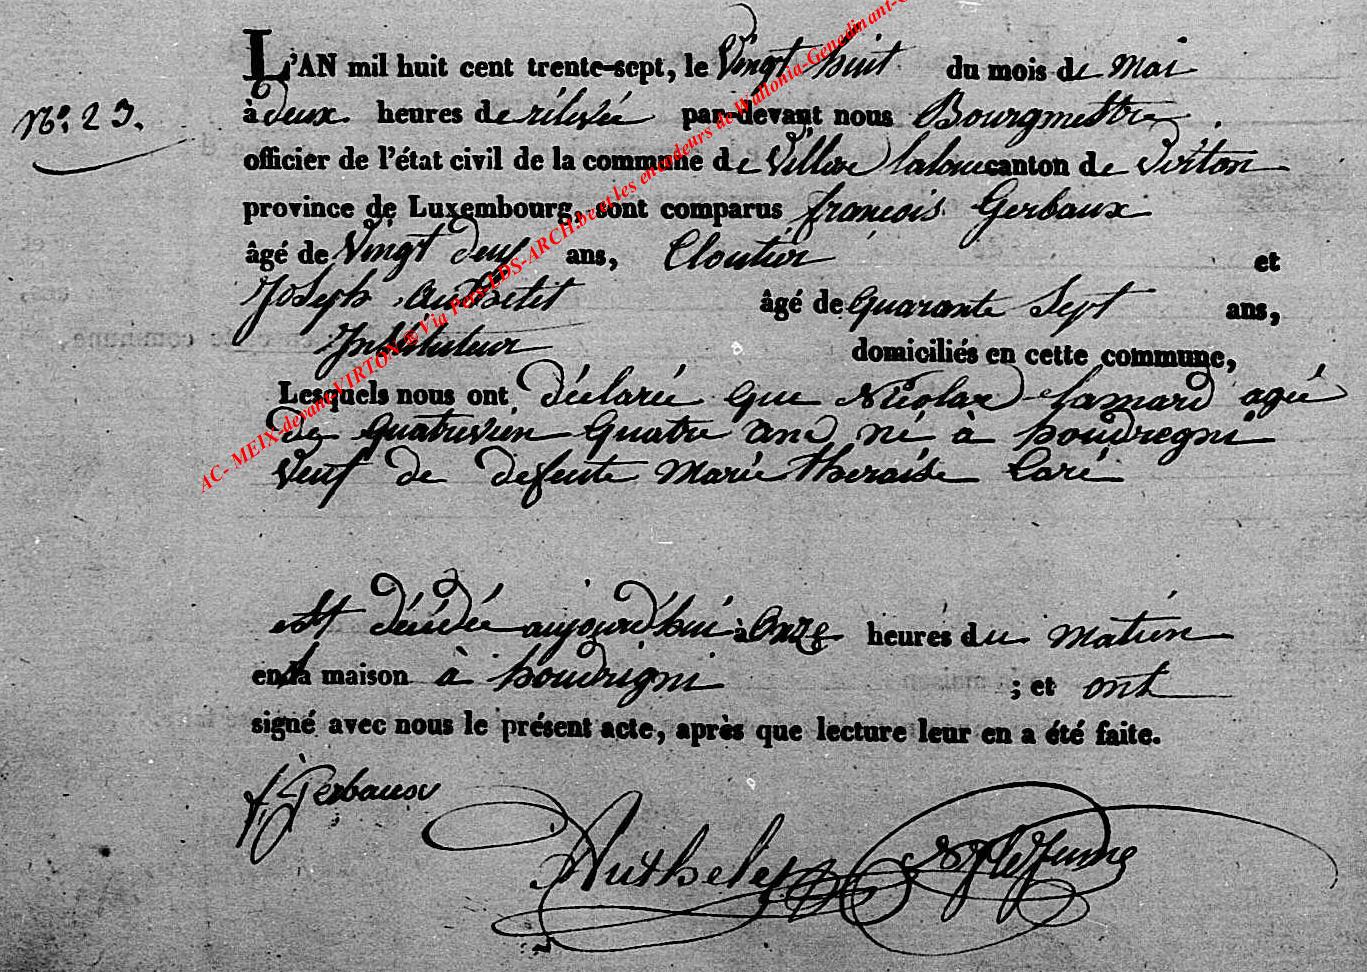 L'AN mil huit cent trente-sept, le Vingt huit du mois de Mai
N.o 23.
à deux heures de rélevée par-devant nous Bourgmettre
officier de l'état civil de la commune de Villere laloue canton de Virton
province de Luxembourg, sont comparus françois Gerbaux
âgé de Vingt deux ans, Cloutier et
Joseph âgé de quarante Sept ans,
Instituteur domiciliés en cette commune,
Lesquels nous ont déclaré que Nicolas Lamard agée
de quatrevien quatre ans né à houdregni
Veuf de defeute Marie theraise Caré
est décédée aujourd'hui à Onze heures du matien
en la maison à houdrigni ; et ont
signé avec nous le présent acte, après que lecture leur en a été faite.
f. Gerbaux
Authelet Lefeune
AC- MEIX-devant-VIRTON @ Via Pers-LDS-ARCH.be et les encodeurs de Wallonia-Genedinant-